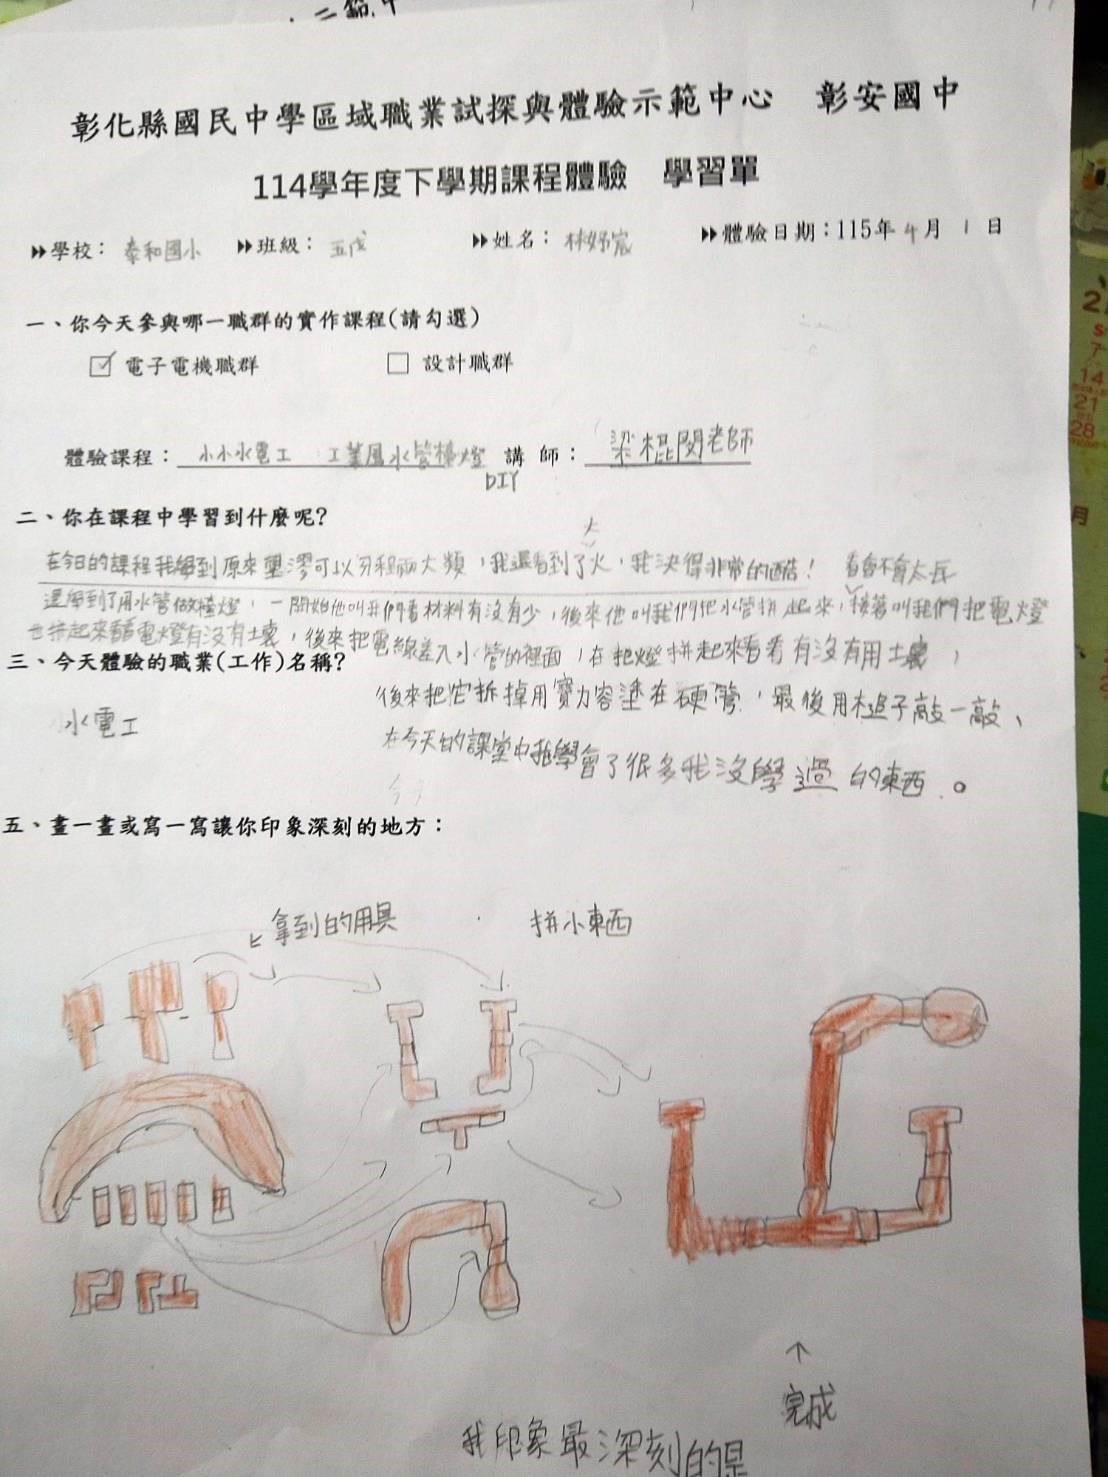 二範中
彰化縣國民中學區域職業試探與體驗示範中心 彰安國中
114學年度下學期課程體驗 學習單
▸▸學校： 泰和國小 ▸▸班級： 五戊 ▸▸姓名： 林妤宸 ▸▸體驗日期：115年 4月 1 日
一、你今天參與哪一職群的實作課程(請勾選)
☑ 電子電機職群 □ 設計職群
體驗課程： 小小水電工 工業風水管檯燈 講 師： 梁棍閔老師
DIY
二、你在課程中學習到什麼呢?
大
在今日的課程我學到原來塑膠可以分程兩大類，我還看到了火，我決得非常的酷！ 看會不會太長
還學到了用水管做檯燈，一開始他叫我們看材料有沒有少，後來他叫我們把水管拼起來，接著叫我們把電燈
也拚起來看看電燈有沒有土壞，後來把電線差入水管的裡面，在把燈拼起來看看有沒有用土壞，
三、今天體驗的職業(工作)名稱?
後來把它拆掉用寶力容塗在硬管，最後用木追子敲一敲、
水電工
在今天的課堂中我學會了很多我沒學過的東西。
五、畫一畫或寫一寫讓你印象深刻的地方：
拿到的用具 拼小東西
完成
我印象最深刻的是
2
S
7
14
21
28
月